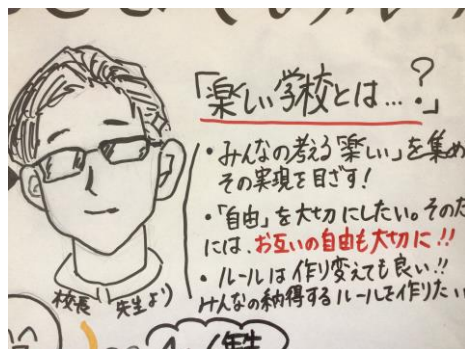 「楽しい学校とは…?」
・みんなの考える「楽しい」を集め
その実現を目ざす!
・「自由」を大切にしたい。そのた
には、お互いの自由も大切に!!
・ルールは作り変えても良い!!
みんなの納得するルールを作りたい
校長 先生より